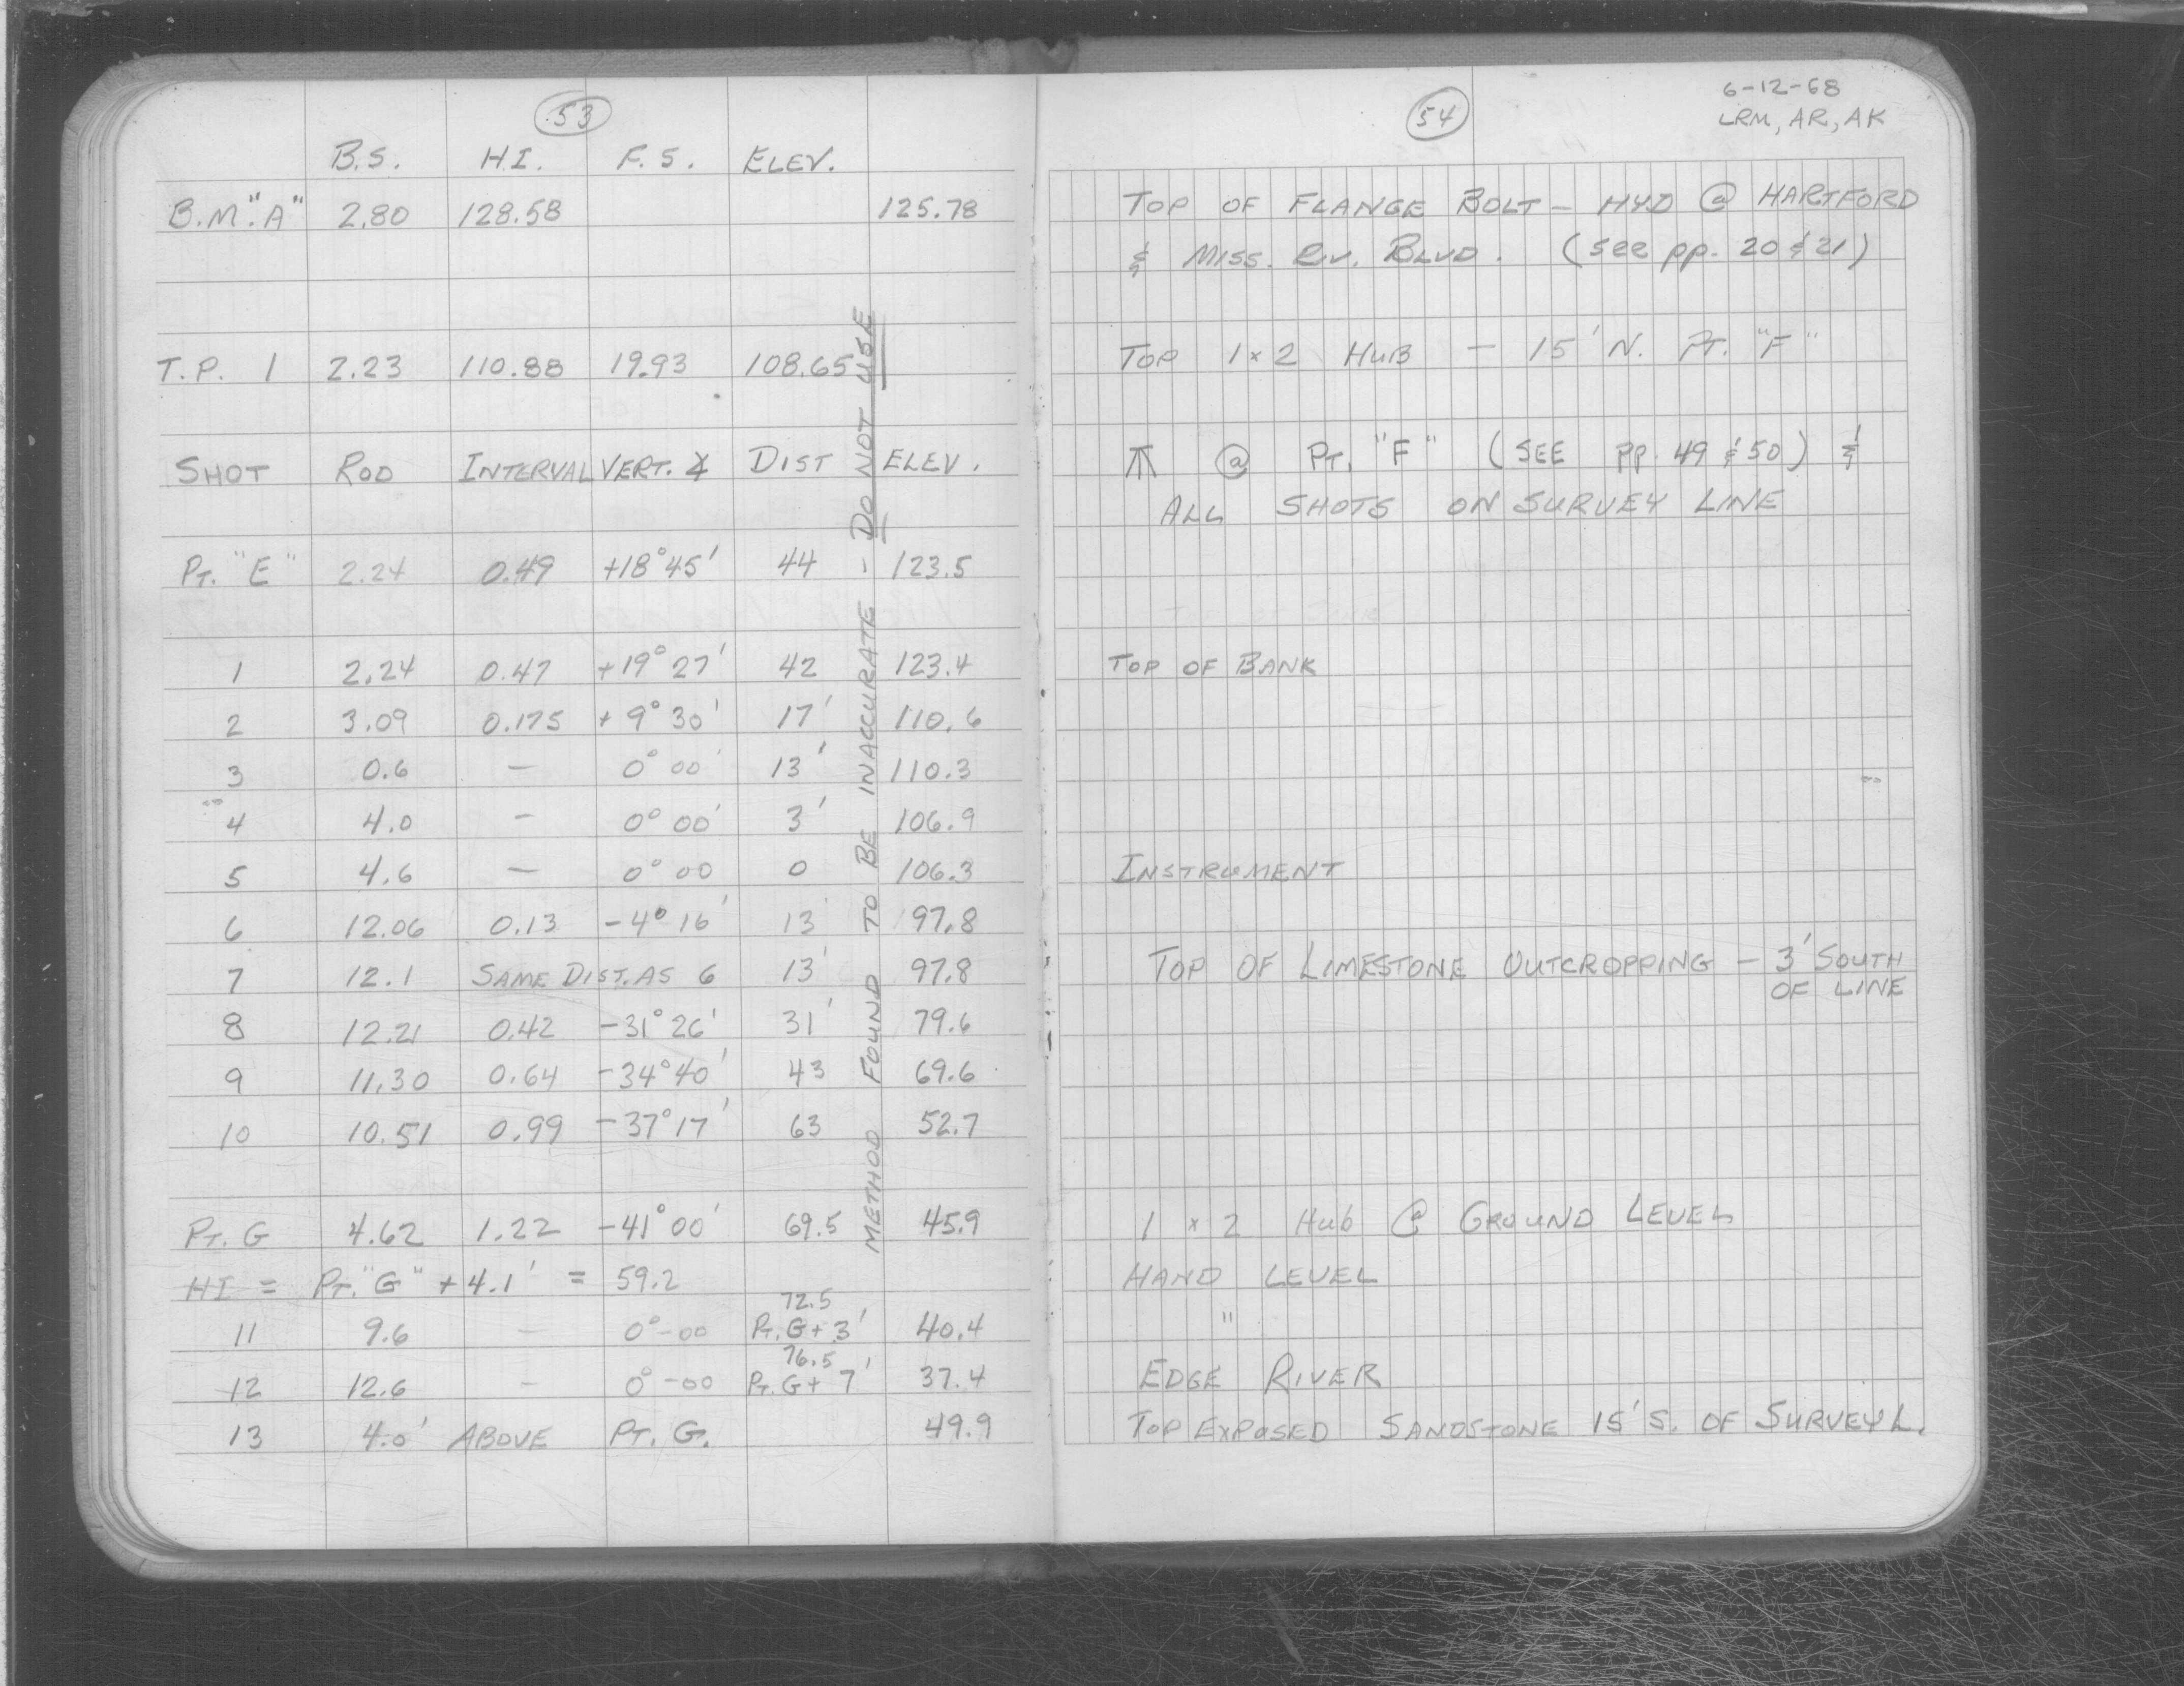 53
B.S. H.I. F.S. ELEV.
B.M. "A" 2.80 128.58 125.78
T.P. 1 2.23 110.88 19.93 108.65
SHOT ROD INTERVAL VERT. ∡ DIST ELEV.
PT. "E" 2.24 0.49 +18°45' 44 123.5
1 2.24 0.47 +19°27' 42 123.4
2 3.09 0.175 +9°30' 17' 110.6
3 0.6 — 0°00' 13' 110.3
4 4.0 — 0°00' 3' 106.9
5 4.6 — 0°00 0 106.3
6 12.06 0.13 -4°16' 13' 97.8
7 12.1 SAME DIST. AS 6 13' 97.8
8 12.21 0.42 -31°26' 31' 79.6
9 11.30 0.64 -34°40' 43 69.6
10 10.51 0.99 -37°17' 63 52.7
PT. G 4.62 1.22 -41°00' 69.5 45.9
HI = PT. "G" + 4.1' = 59.2
72.5
11 9.6 — 0°-00 PT. G + 3' 40.4
76.5
12 12.6 — 0°-00 PT. G + 7' 37.4
13 4.0' ABOVE PT. G. 49.9
METHOD FOUND TO BE INACCURATE - DO NOT USE
54
6-12-68
LRM, AR, AK
TOP OF FLANGE BOLT — HYD @ HARTFORD
& MISS. RV. BLVD. (see pp. 20 & 21)
TOP 1x2 HUB — 15' N. PT. "F"
@ PT. "F" (SEE PP. 49 & 50) &
ALL SHOTS ON SURVEY LINE
TOP OF BANK
INSTRUMENT
TOP OF LIMESTONE OUTCROPPING — 3' SOUTH
OF LINE
1 x 2 Hub @ GROUND LEVEL
HAND LEVEL
"
EDGE RIVER
TOP EXPOSED SANDSTONE 15' S. OF SURVEY L.